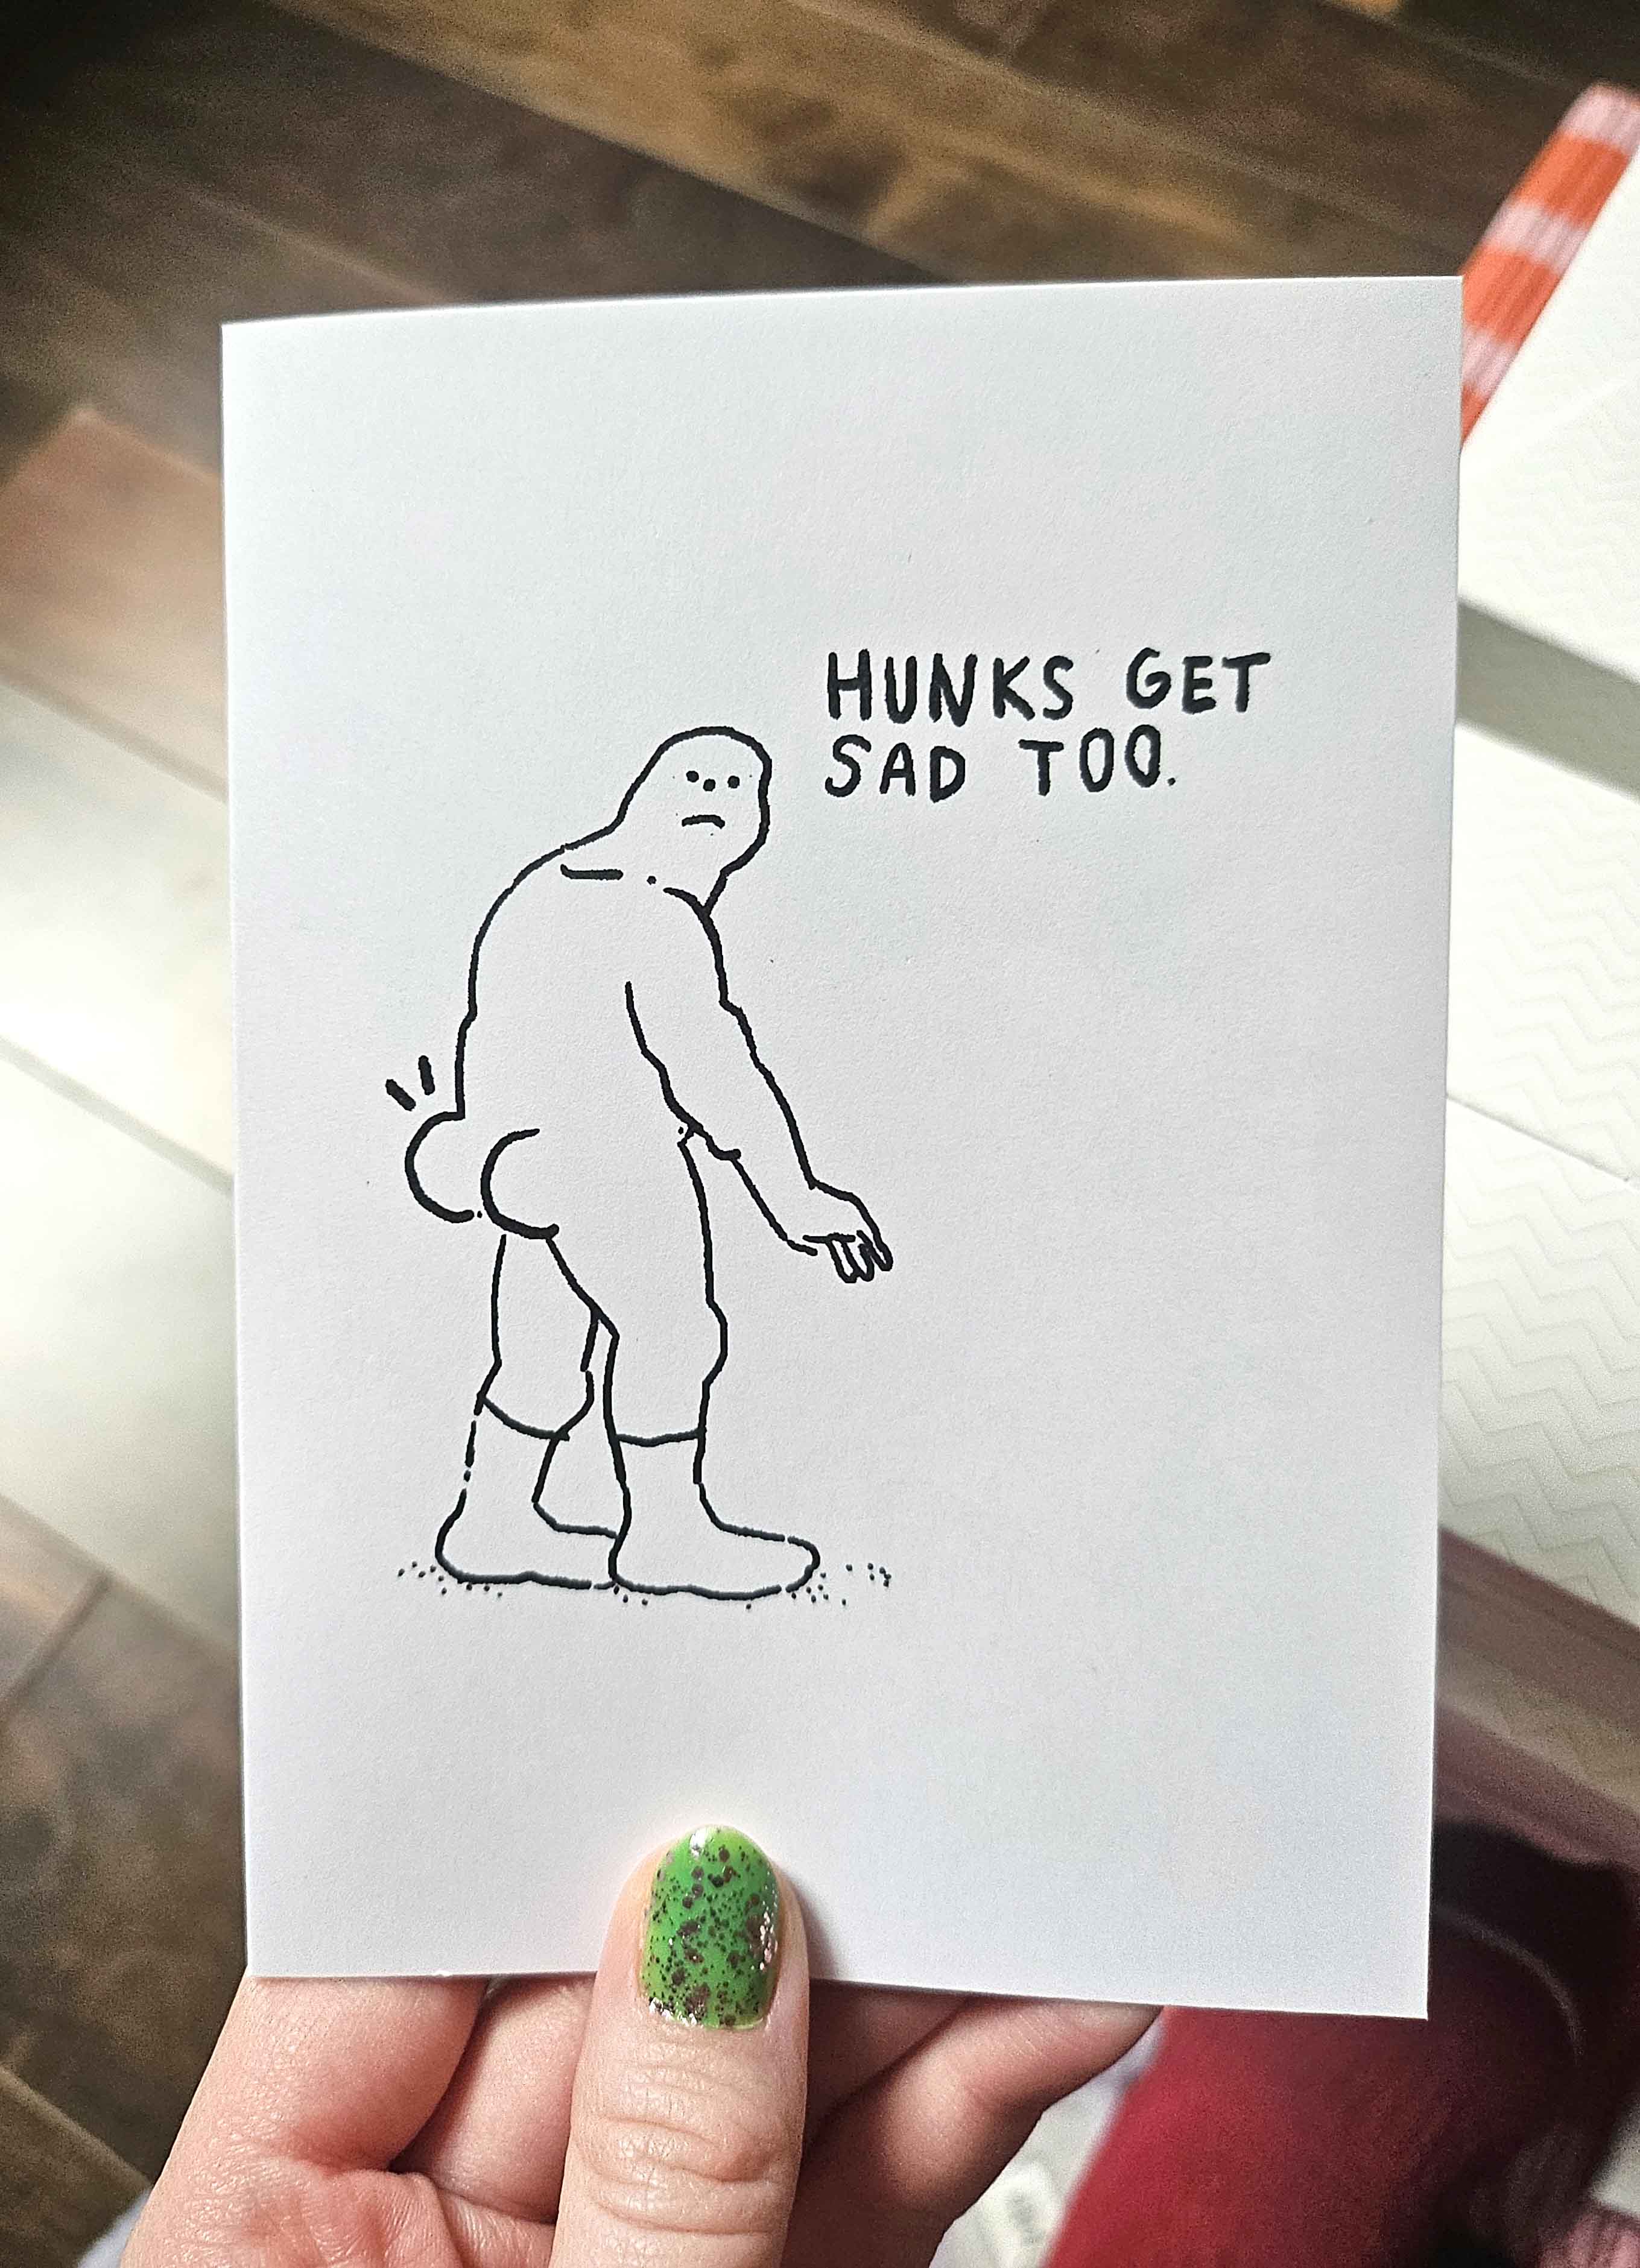 HUNKS GET
SAD TOO.